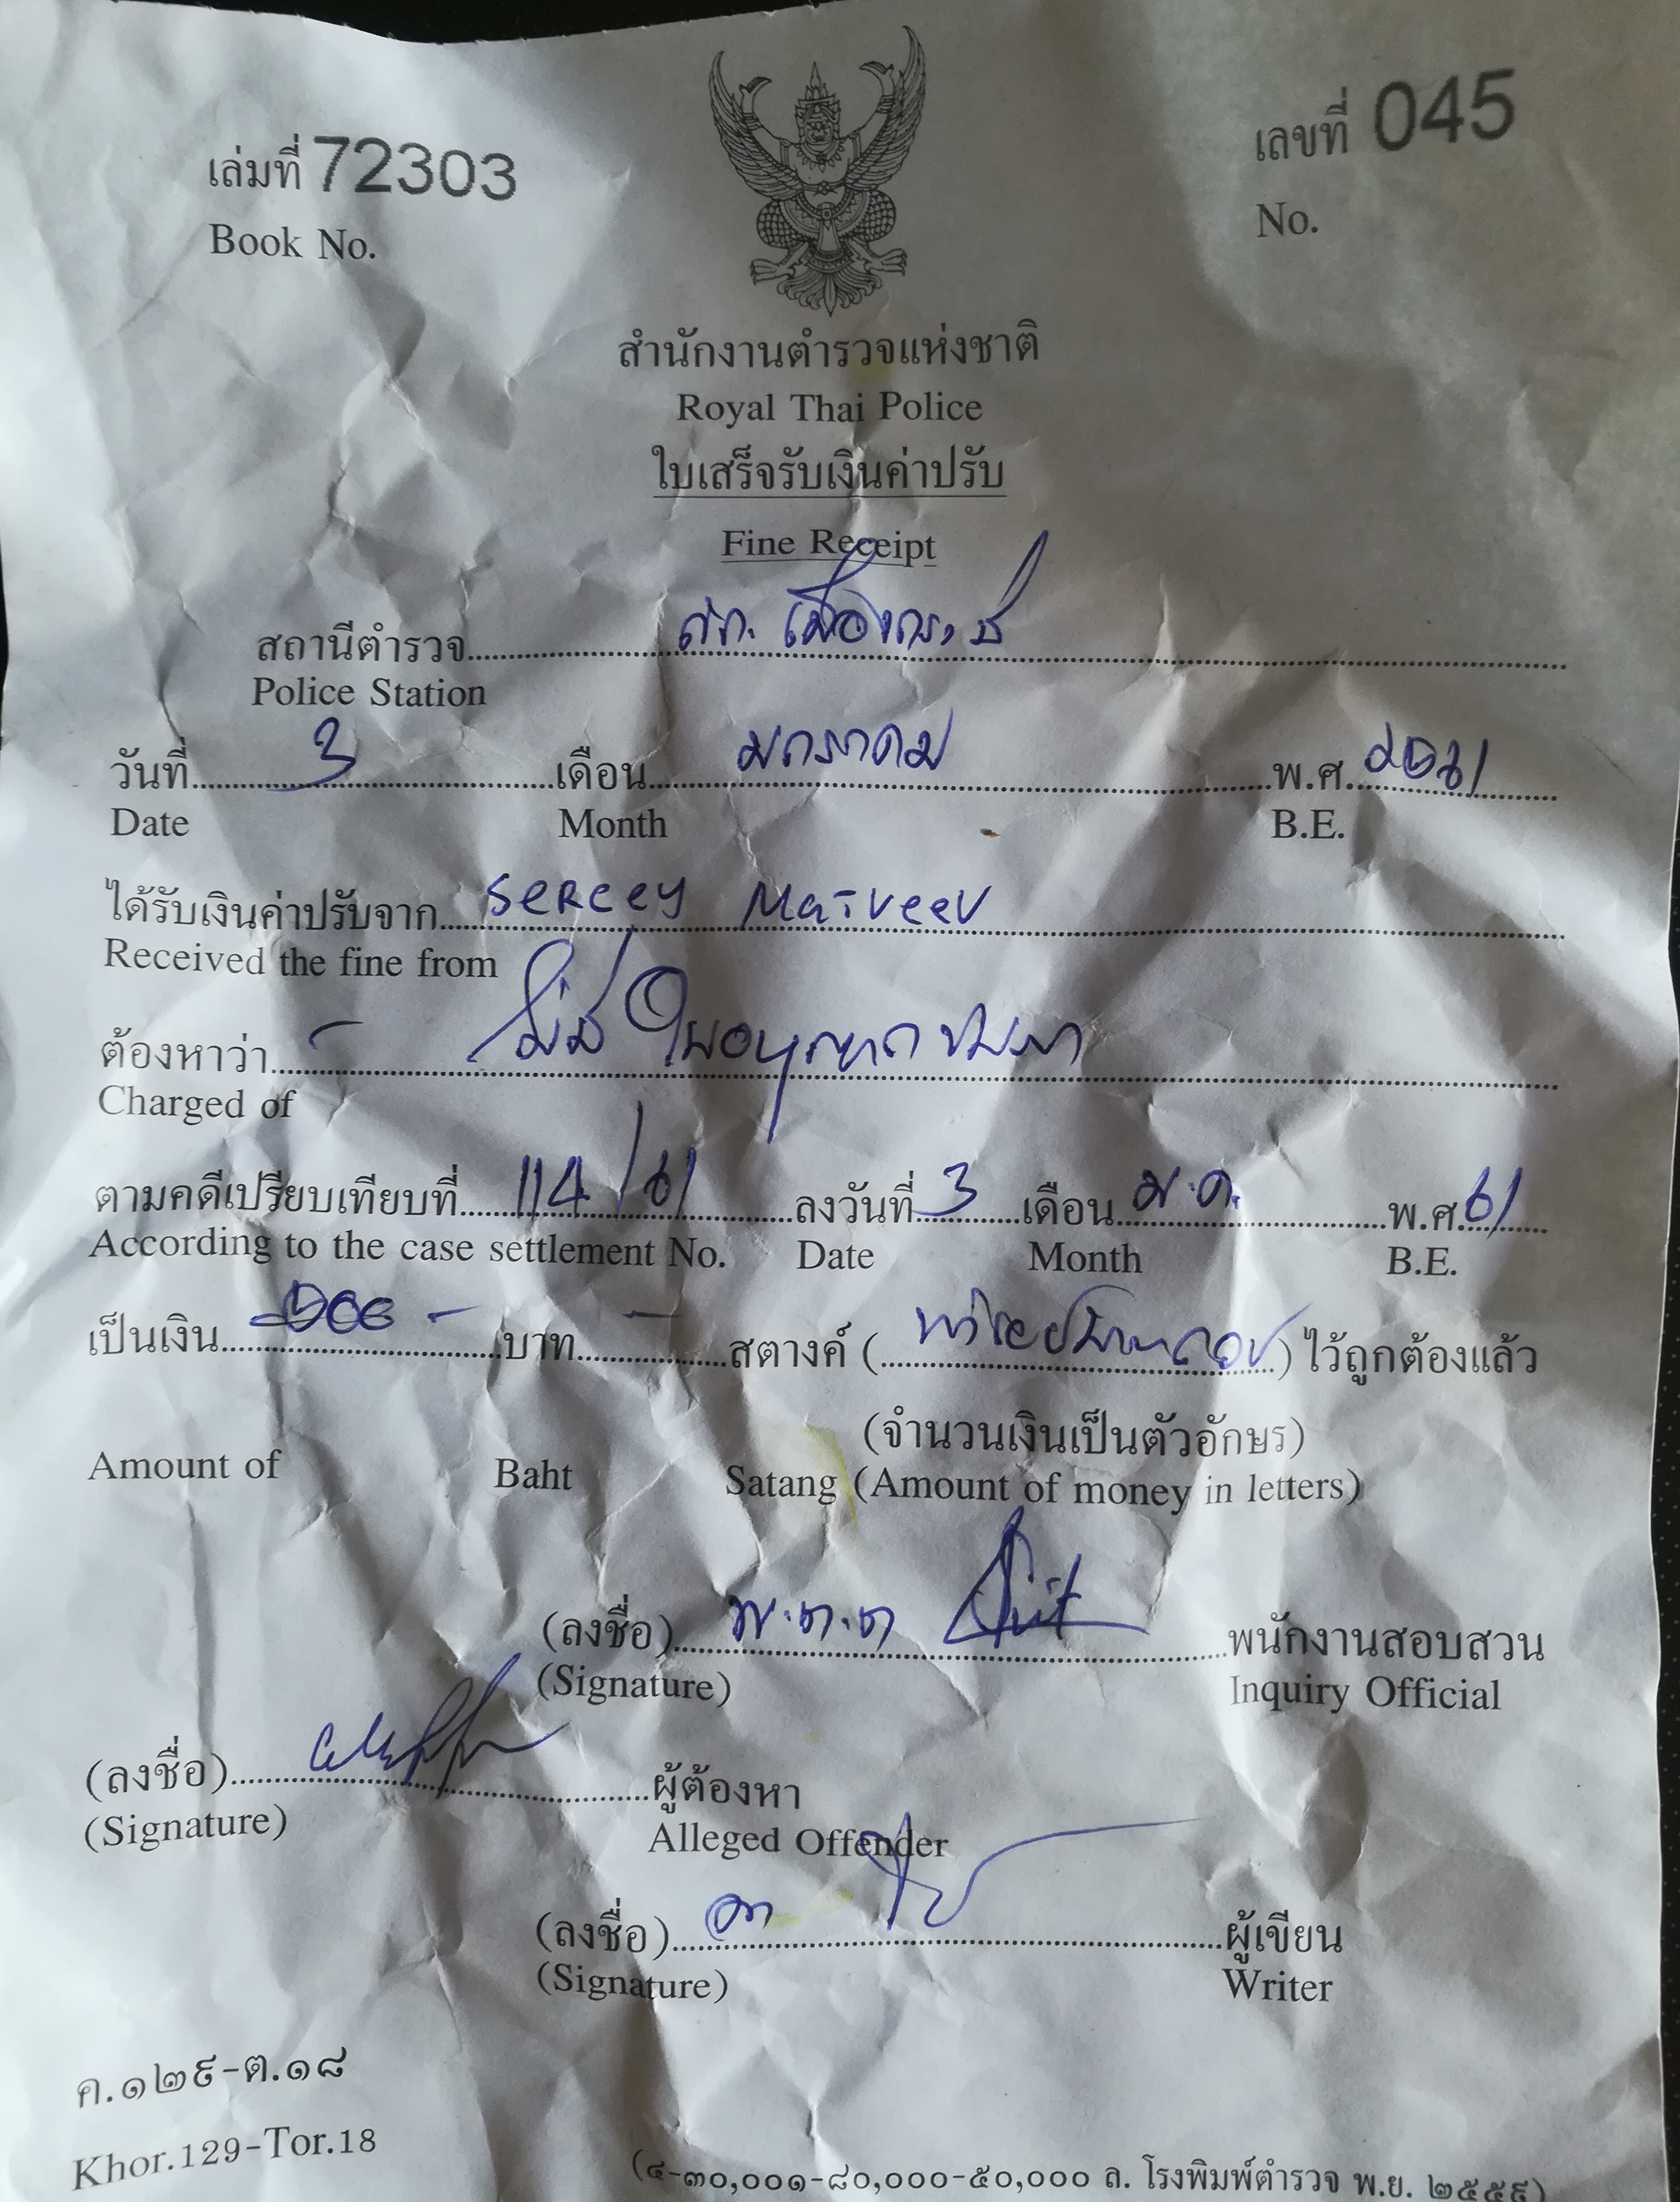 เล่มที่ 72303
Book No.
เลขที่ 045
No.
สำนักงานตำรวจแห่งชาติ
Royal Thai Police
ใบเสร็จรับเงินค่าปรับ
Fine Receipt
สถานีตำรวจ
Police Station
วันที่ 3 เดือน มกราคม พ.ศ. 2561
Date Month B.E.
ได้รับเงินค่าปรับจาก Sercey Matveev
Received the fine from
ต้องหาว่า ไม่มีใบอนุญาตขับขี่
Charged of
ตามคดีเปรียบเทียบที่ 114/61 ลงวันที่ 3 เดือน ม.ค. พ.ศ. 61
According to the case settlement No. Date Month B.E.
เป็นเงิน 500 - บาท - สตางค์ (ห้าร้อยบาทถ้วน) ไว้ถูกต้องแล้ว
(จำนวนเงินเป็นตัวอักษร)
Amount of Baht Satang (Amount of money in letters)
(ลงชื่อ) พ.ต.ต. พนักงานสอบสวน
(Signature) Inquiry Official
(ลงชื่อ) ผู้ต้องหา
(Signature) Alleged Offender
(ลงชื่อ) ผู้เขียน
(Signature) Writer
ค.๑๒๙-ต.๑๘
Khor.129-Tor.18
(๔-๓๐,๐๐๑-๘๐,๐๐๐-๕๐,๐๐๐ ล. โรงพิมพ์ตำรวจ พ.ย. ๒๕๕๙)